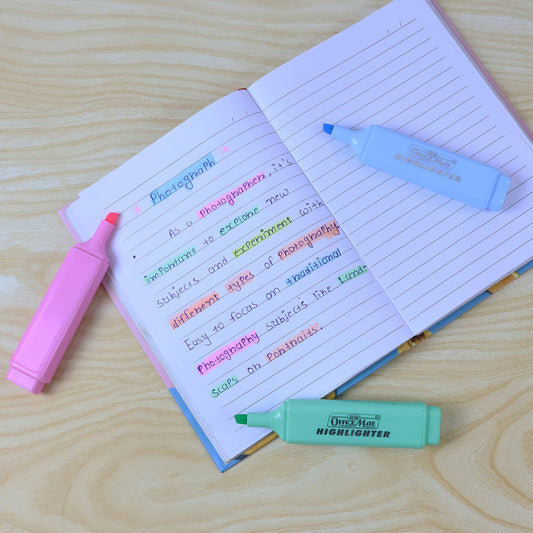 Photograph
As a photographer, it's
important to explore new
subjects and experiment with
different types of photography.
Easy to focus on traditional
photography subjects like Land-
scaps or Portraits.
OFFICE MATE
HIGHLIGHTER
HIGHLIGHTER